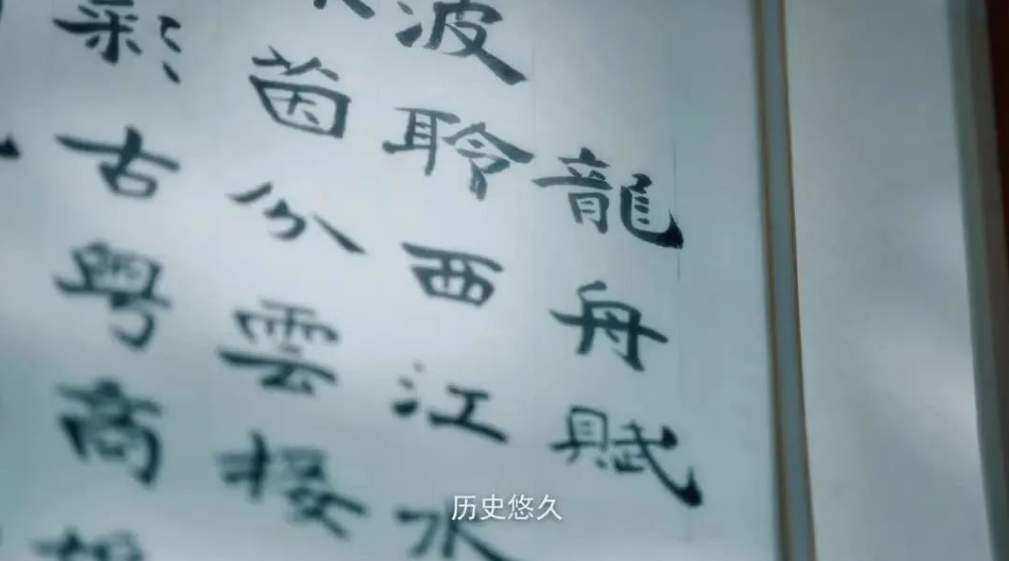 龍舟賦
波聆西江水
茵分雲接
彩古粤商
历史悠久